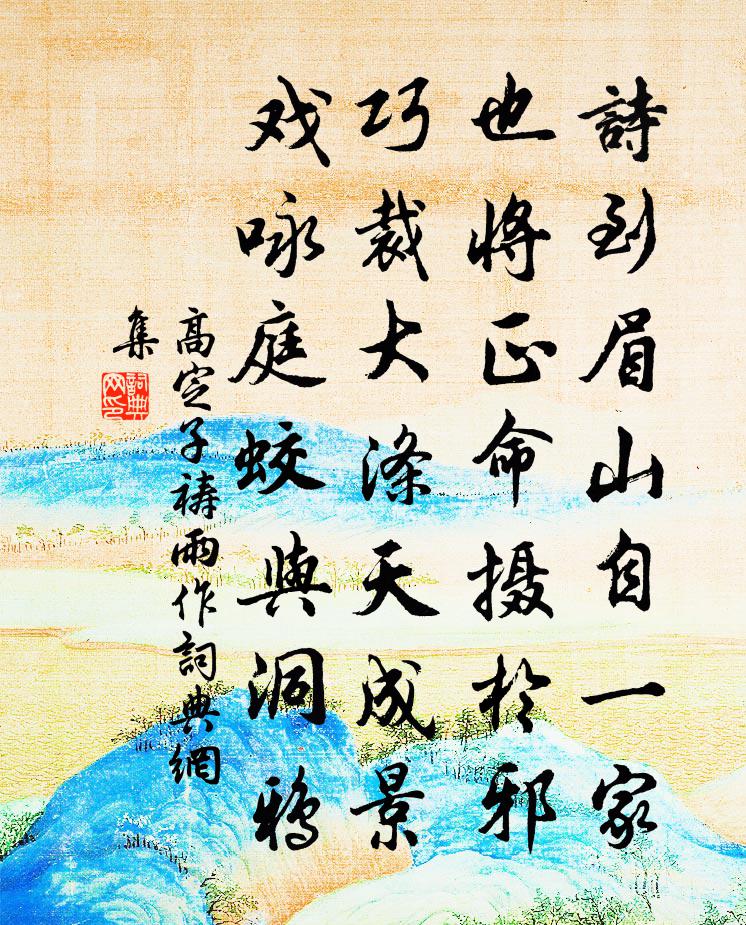 詩到眉山自一家
也將正命摄於邪
巧裁大滌天成景
戏咏庭蛟與洞鴉
高定子禱雨作詞典網
集
詞典網印